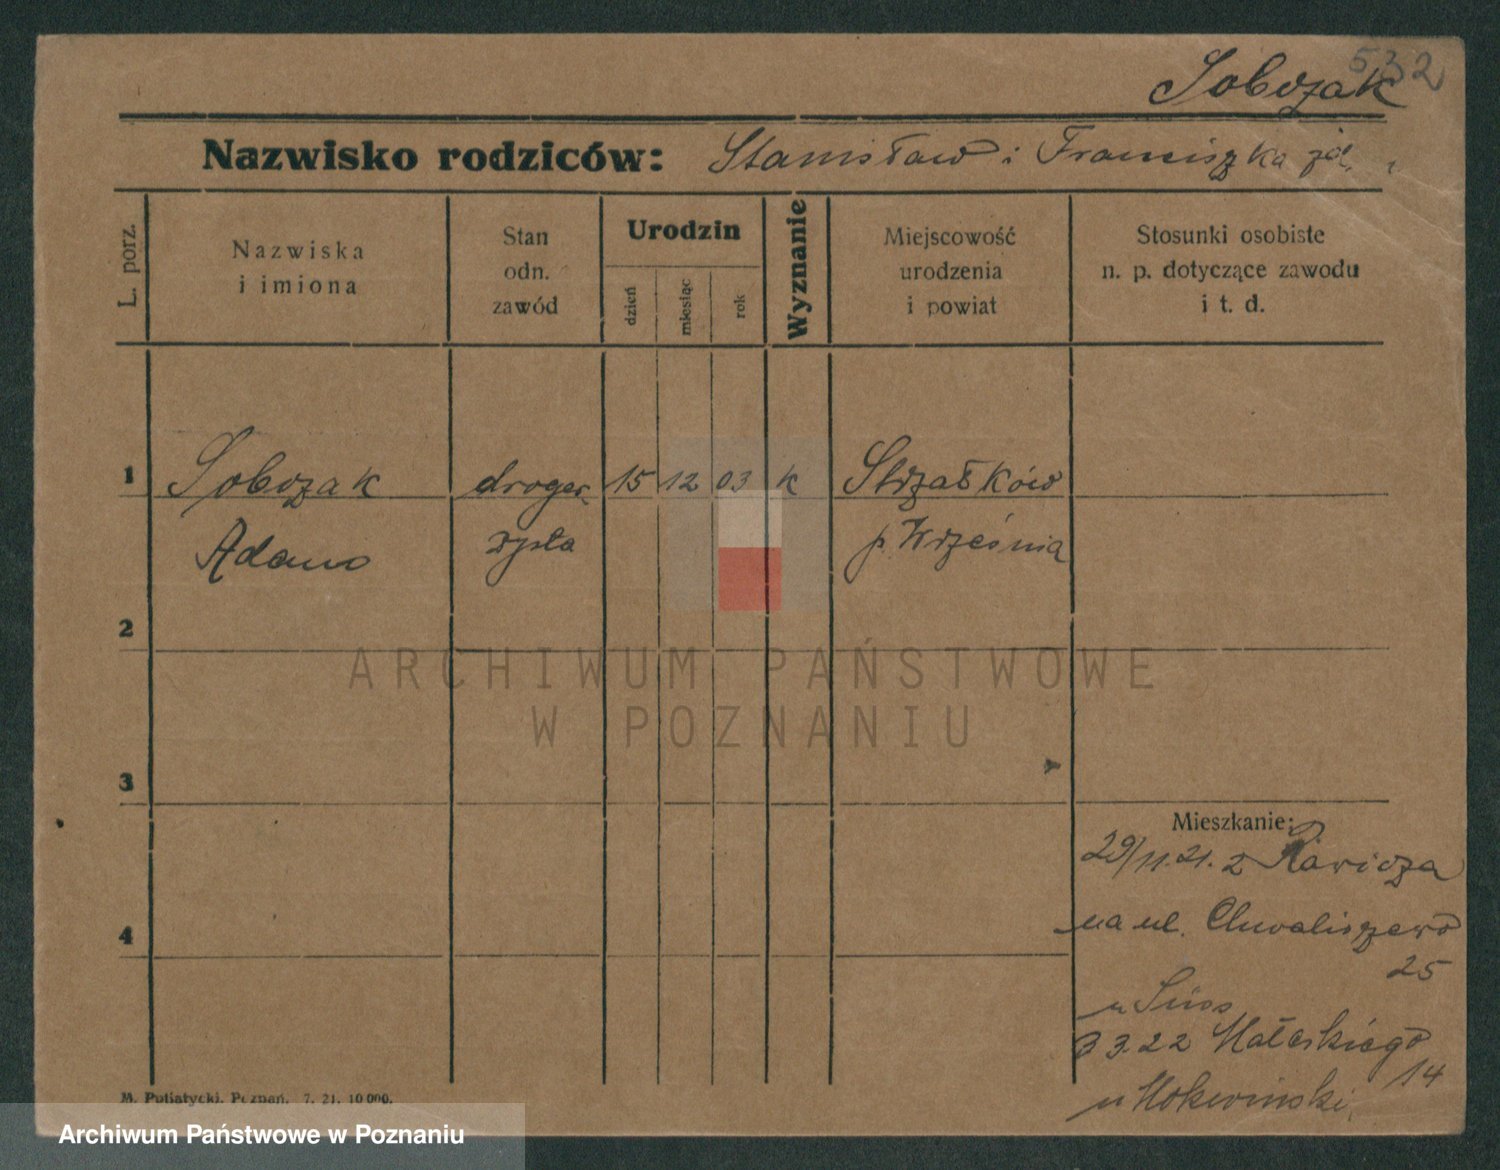 532
Sobczak
Nazwisko rodziców: Stanisław i Franciszka
L. porz.
Nazwiska
i imiona
Stan
odn.
zawód
Urodzin
dzień
miesiąc
rok
Wyznanie
Miejscowość
urodzenia
i powiat
Stosunki osobiste
n. p. dotyczące zawodu
i t. d.
1 Sobczak droger- 15 12 03 k Strzałków
Adam zysta p. Września
2
ARCHIWUM PAŃSTWOWE
W POZNANIU
3
Mieszkanie:
29/11.21. z Rawicza
na ul. Chwaliszewo
4
25
u
3 3.22 Małeckiego
14
u
M. Putiatycki, Poznań. 7. 21. 10 000.
Archiwum Państwowe w Poznaniu